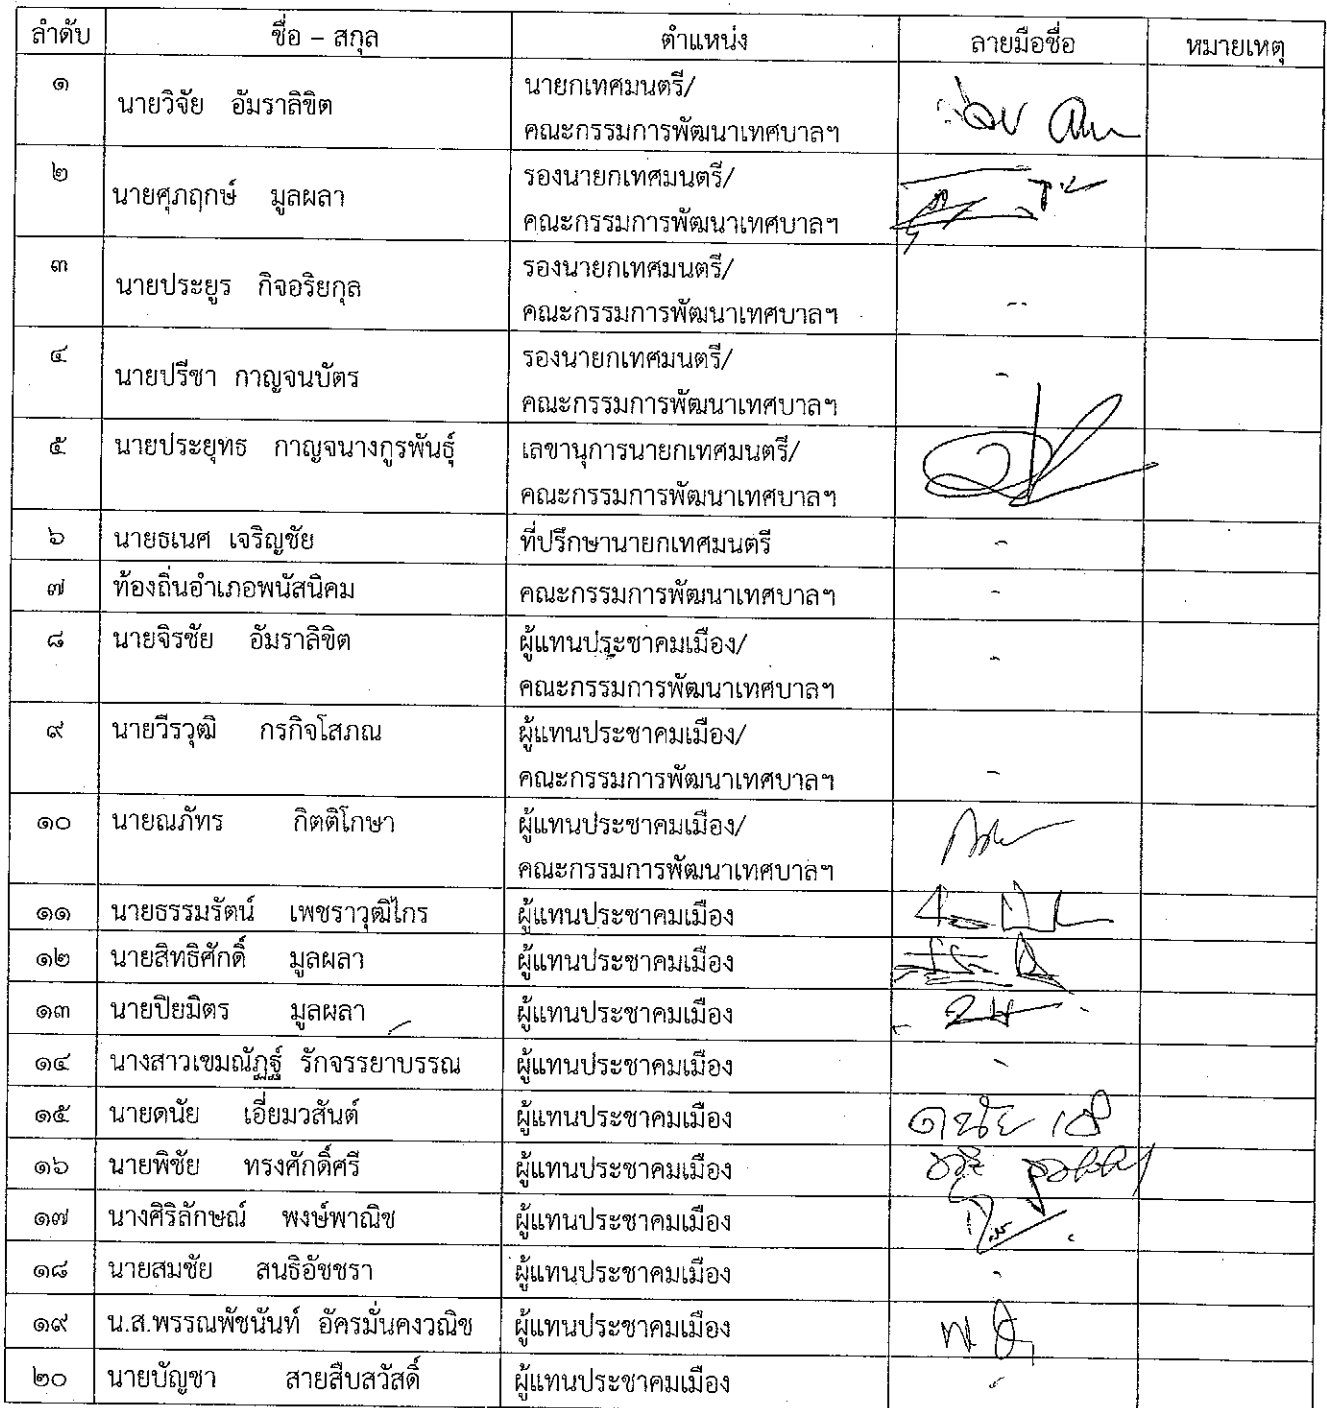 ลำดับ ชื่อ – สกุล ตำแหน่ง ลายมือชื่อ หมายเหตุ
๑ นายวิจัย อัมราลิขิต นายกเทศมนตรี/
คณะกรรมการพัฒนาเทศบาลฯ
๒ นายศุภฤกษ์ มูลผลา รองนายกเทศมนตรี/
คณะกรรมการพัฒนาเทศบาลฯ
๓ นายประยูร กิจอริยกุล รองนายกเทศมนตรี/
คณะกรรมการพัฒนาเทศบาลฯ -
๔ นายปรีชา กาญจนบัตร รองนายกเทศมนตรี/ -
คณะกรรมการพัฒนาเทศบาลฯ
๕ นายประยุทธ กาญจนางกูรพันธุ์ เลขานุการนายกเทศมนตรี/
คณะกรรมการพัฒนาเทศบาลฯ
๖ นายธเนศ เจริญชัย ที่ปรึกษานายกเทศมนตรี -
๗ ท้องถิ่นอำเภอพนัสนิคม คณะกรรมการพัฒนาเทศบาลฯ -
๘ นายจิรชัย อัมราลิขิต ผู้แทนประชาคมเมือง/ -
คณะกรรมการพัฒนาเทศบาลฯ
๙ นายวีรวุฒิ กรกิจโสภณ ผู้แทนประชาคมเมือง/
คณะกรรมการพัฒนาเทศบาลฯ -
๑๐ นายณภัทร กิตติโกษา ผู้แทนประชาคมเมือง/
คณะกรรมการพัฒนาเทศบาลฯ
๑๑ นายธรรมรัตน์ เพชราวุฒิไกร ผู้แทนประชาคมเมือง
๑๒ นายสิทธิศักดิ์ มูลผลา ผู้แทนประชาคมเมือง
๑๓ นายปิยมิตร มูลผลา ผู้แทนประชาคมเมือง
๑๔ นางสาวเขมณัฏฐ์ รักจรรยาบรรณ ผู้แทนประชาคมเมือง -
๑๕ นายดนัย เอี่ยมวสันต์ ผู้แทนประชาคมเมือง ดนัย
๑๖ นายพิชัย ทรงศักดิ์ศรี ผู้แทนประชาคมเมือง
๑๗ นางศิริลักษณ์ พงษ์พาณิช ผู้แทนประชาคมเมือง
๑๘ นายสมชัย สนธิอัชชรา ผู้แทนประชาคมเมือง -
๑๙ น.ส.พรรณพัชนันท์ อัครมั่นคงวณิช ผู้แทนประชาคมเมือง
๒๐ นายบัญชา สายสืบสวัสดิ์ ผู้แทนประชาคมเมือง -